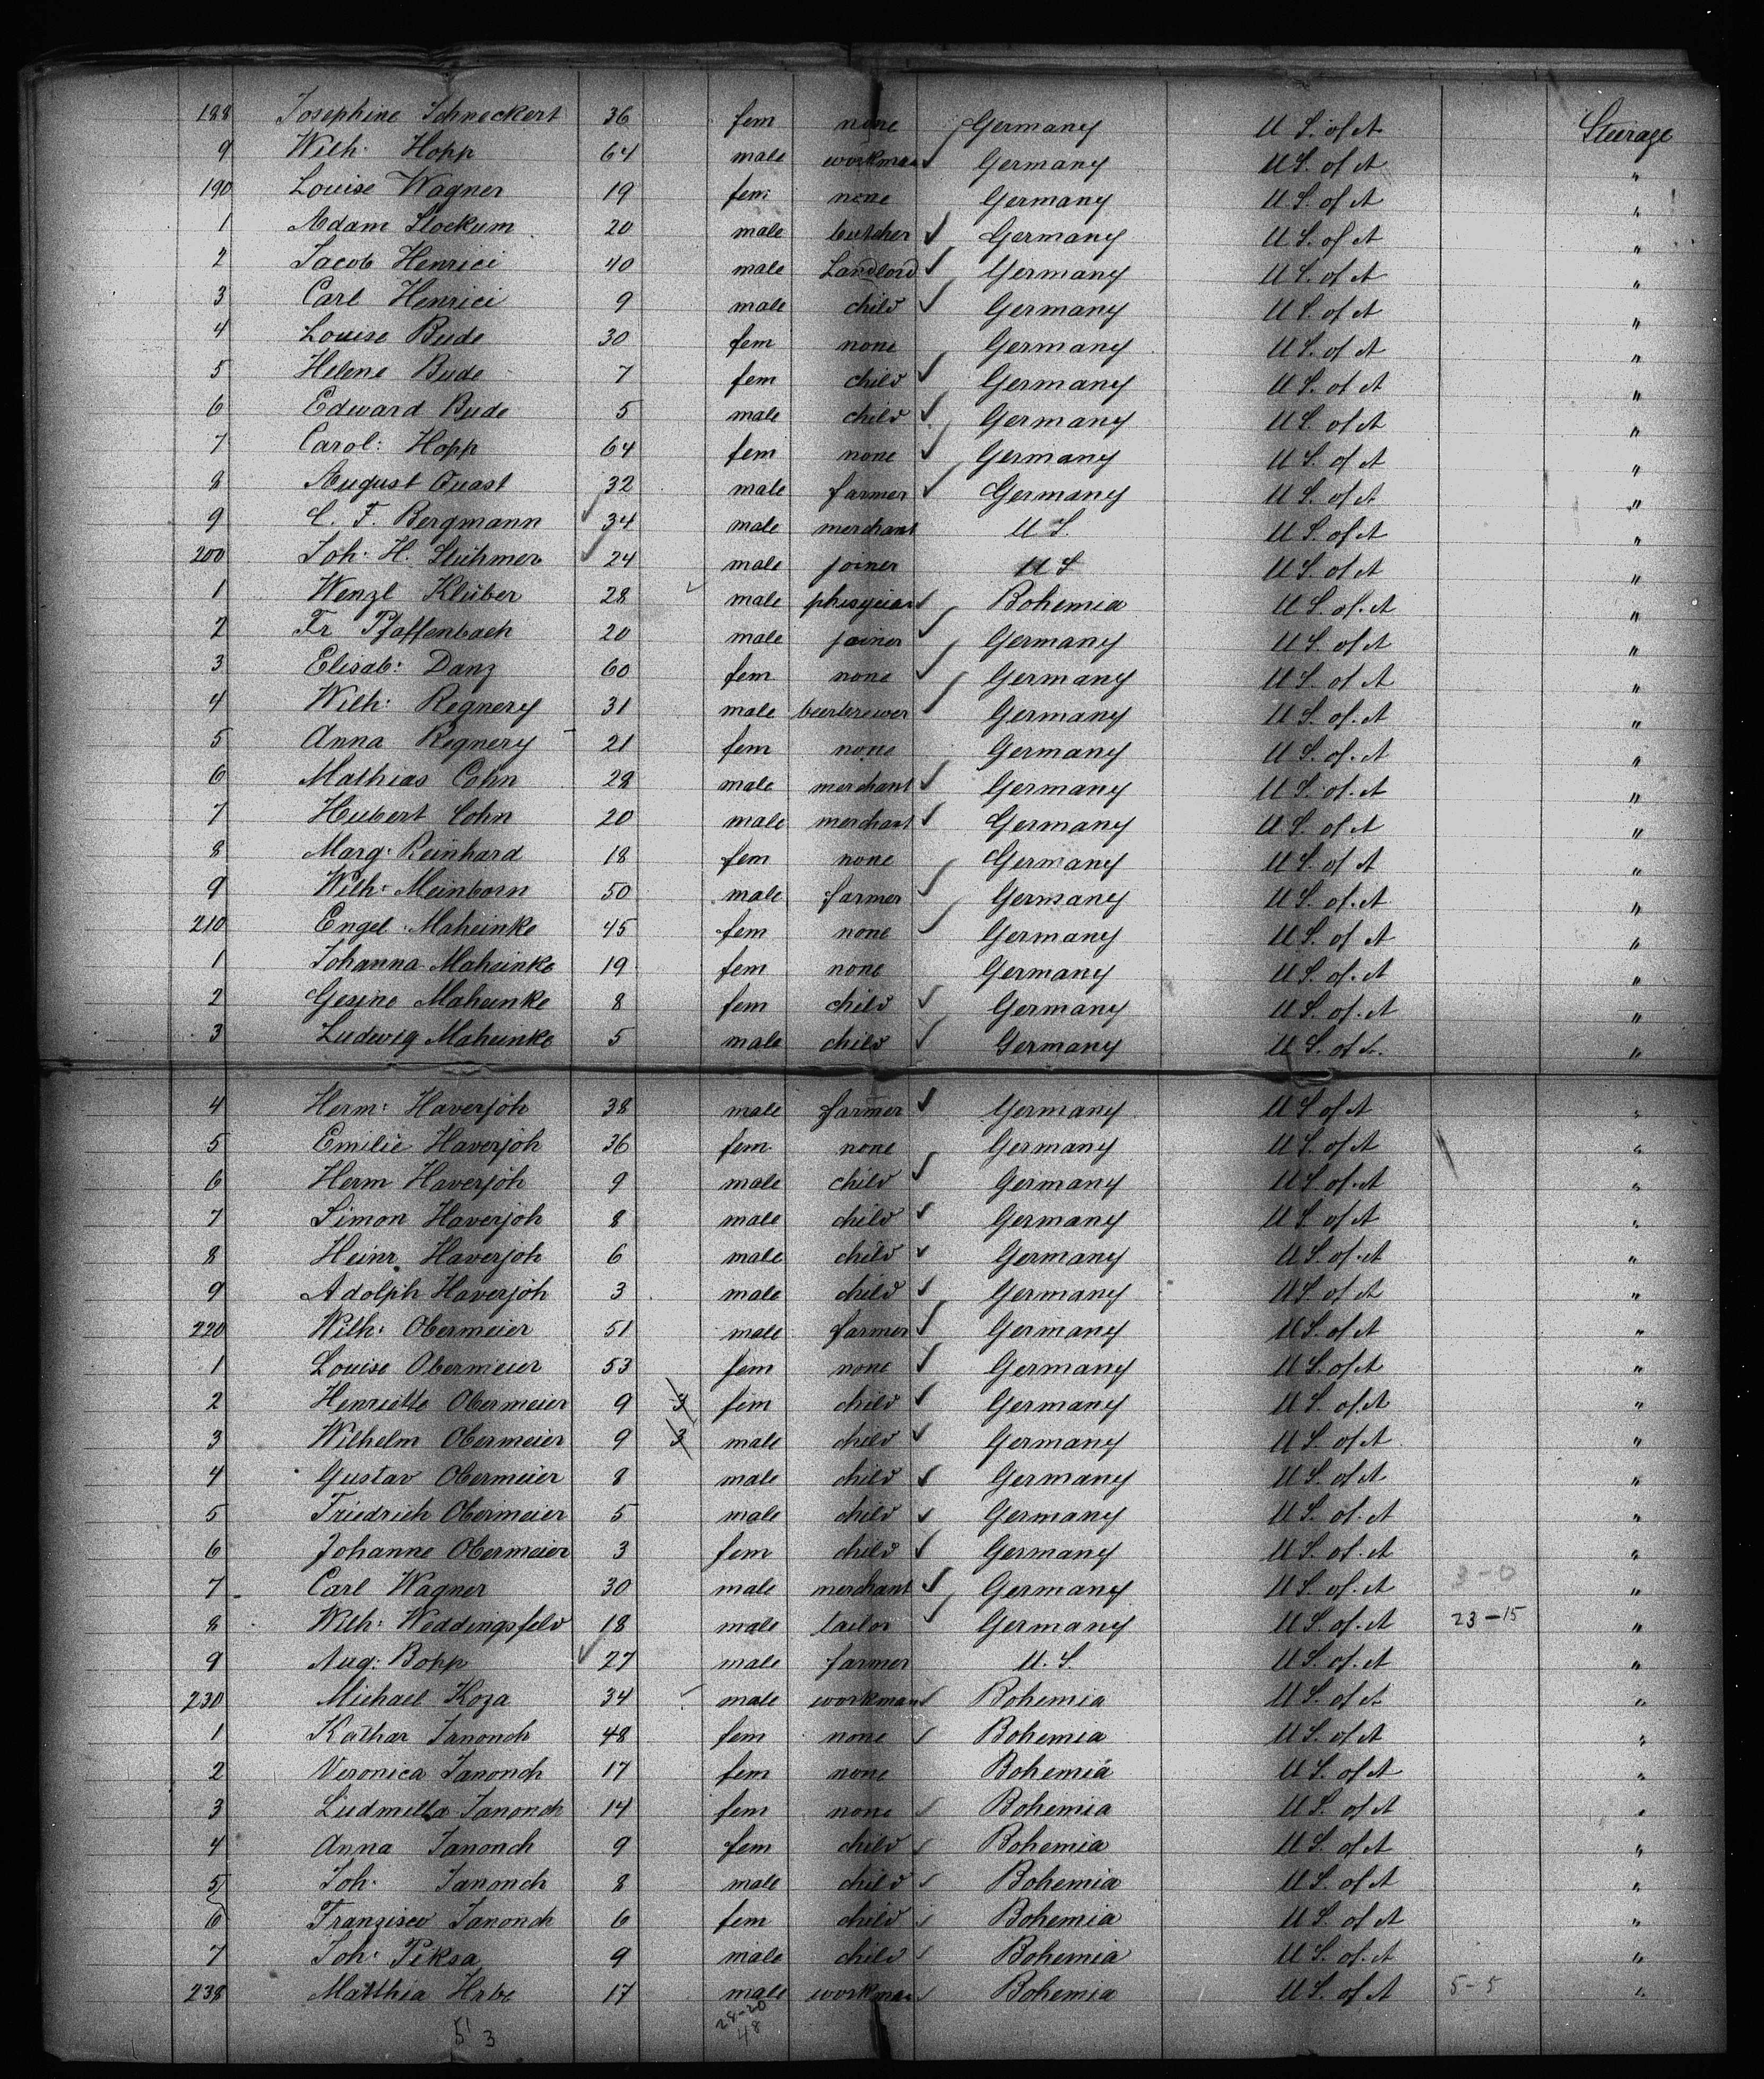 188 Josephine Schneckert 36 fem none Germany U S. of A Steerage
9 Wilh: Hopp 64 male workman Germany U S. of A "
190 Louise Wagner 19 fem none Germany U S. of A "
1 Adam Stockum 20 male butcher Germany U S. of A "
2 Jacob Henrici 40 male Landlord Germany U S. of A "
3 Carl Henrici 9 male child Germany U S. of A "
4 Louise Bude 30 fem none Germany U S. of A "
5 Helene Bude 7 fem child Germany U S. of A "
6 Edward Bude 5 male child Germany U S. of A "
7 Carol: Hopp 64 fem none Germany U S. of A "
8 August Quast 32 male farmer Germany U S. of A "
9 C. F. Bergmann 34 male merchant U S. U S. of A "
200 Joh: H. Stühmer 24 male joiner U S U S. of A "
1 Wenzl Klüber 28 male phisycian Bohemia U S. of A "
2 Fr Pfaffenbach 20 male joiner Germany U S. of A "
3 Elisab: Danz 60 fem none Germany U S. of A "
4 Wilh: Regnery 31 male beerbrewer Germany U S. of A "
5 Anna Regnery 21 fem none Germany U S. of A "
6 Mathias Cohn 28 male merchant Germany U S. of A "
7 Hubert Cohn 20 male merchant Germany U S. of A "
8 Marg: Reinhard 18 fem none Germany U S. of A "
9 Wilh: Meinborn 50 male farmer Germany U S. of A "
210 Engel Maheinke 45 fem none Germany U S. of A "
1 Johanna Maheinke 19 fem none Germany U S. of A "
2 Gesine Maheinke 8 fem child Germany U S. of A "
3 Ludwig Maheinke 5 male child Germany U S. of A. "
4 Herm: Haverjoh 38 male farmer Germany U S of A "
5 Emilie Haverjoh 36 fem none Germany U S. of A "
6 Herm Haverjoh 9 male child Germany U S. of A "
7 Simon Haverjoh 8 male child Germany U S. of A "
8 Heinr. Haverjoh 6 male child Germany U S. of A "
9 Adolph Haverjoh 3 male child Germany U S. of A "
220 Wilh: Obermeier 51 male farmer Germany U S. of A "
1 Louise Obermeier 53 fem none Germany U S. of A "
2 Henriette Obermeier 9 3 fem child Germany U S. of A "
3 Wilhelm Obermeier 9 3 male child Germany U S. of A "
4 Gustav Obermeier 8 male child Germany U S. of A "
5 Friedrich Obermeier 5 male child Germany U S. of A "
6 Johanne Obermeier 3 fem child Germany U S. of A "
7 Carl Wagner 30 male merchant Germany U S. of A 3-0 "
8 Wilh: Weddingsfeld 18 male tailor Germany U S. of A 23-15 "
9 Aug: Bopp 27 male farmer U. S. U S. of A "
230 Michael Koza 34 male workman Bohemia U S. of A "
1 Kathar Janonch 48 fem none Bohemia U S. of A "
2 Veronica Janonch 17 fem none Bohemia U S. of A "
3 Ludmilla Janonch 14 fem none Bohemia U S. of A "
4 Anna Janonch 9 fem child Bohemia U S. of A "
5 Joh: Janonch 8 male child Bohemia U S. of A "
6 Franzisca Janonch 6 fem child Bohemia U S. of A "
7 Joh: Piksa 9 male child Bohemia U S. of A "
238 Matthia Hrbe 17 male workman Bohemia U S. of A 5-5 "
28-20
51 3 48